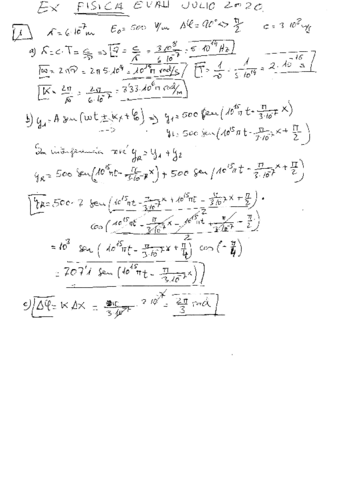 EX FISICA EVAU JULIO 2020.
1 λ = 6·10⁻⁷ m E₀ = 500 V/m Δφ = 90° ⇒ π/2 c = 3·10⁸ m/s
a) λ = c·T = c/ν ⇒ ν = c/λ = 3·10⁸/6·10⁻⁷ = 5·10¹⁴ Hz
ω = 2πν = 2π5·10¹⁴ = 10¹⁵π rad/s T = 1/ν = 2·10⁻¹⁵ s
K = 2π/λ = 2π/6·10⁻⁷ = 3'33·10⁶π rad/m
b) y₁ = A sen(ωt ± Kx + φ) ⇒ y₁ = 500 sen(10¹⁵πt − π/3·10⁻⁷ x)
y₂ = 500 sen(10¹⁵πt − π/3·10⁻⁷ x + π/2)
Su interferencia será y_R = y₁ + y₂
y_R = 500 sen(10¹⁵πt − π/3·10⁻⁷ x) + 500 sen(10¹⁵πt − π/3·10⁻⁷ x + π/2)
y_R = 500·2 sen(10¹⁵πt − π/3·10⁻⁷ x + 10¹⁵πt − π/3·10⁻⁷ x + π/2 / 2)·
cos(10¹⁵πt − π/3·10⁻⁷ x − 10¹⁵πt − π/3·10⁻⁷ x − π/2 / 2)
= 10³ sen(10¹⁵πt − π/3·10⁻⁷ x + π/4) cos(−π/4)
= 707'1 sen(10¹⁵πt − π/3·10⁻⁷ x)
c) Δφ = K Δx = π/3·10⁻⁷ · 2·10⁻⁷ = 2π/3 rad